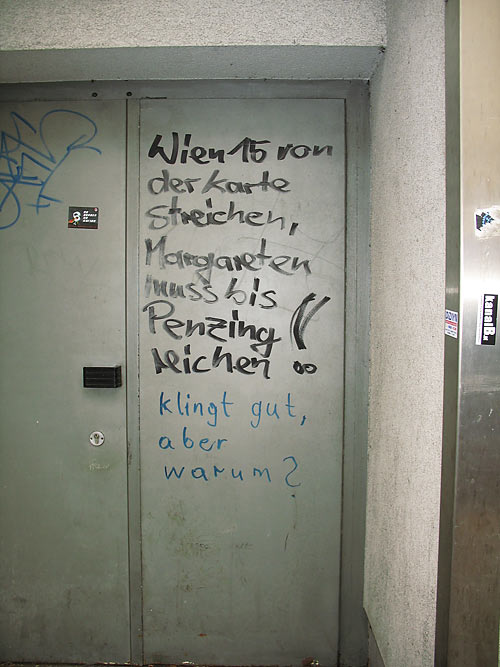 Wien 15 von
der Karte
streichen,
Margareten
muss bis
Penzing
reichen!!
klingt gut,
aber
warum?
kanalB.at